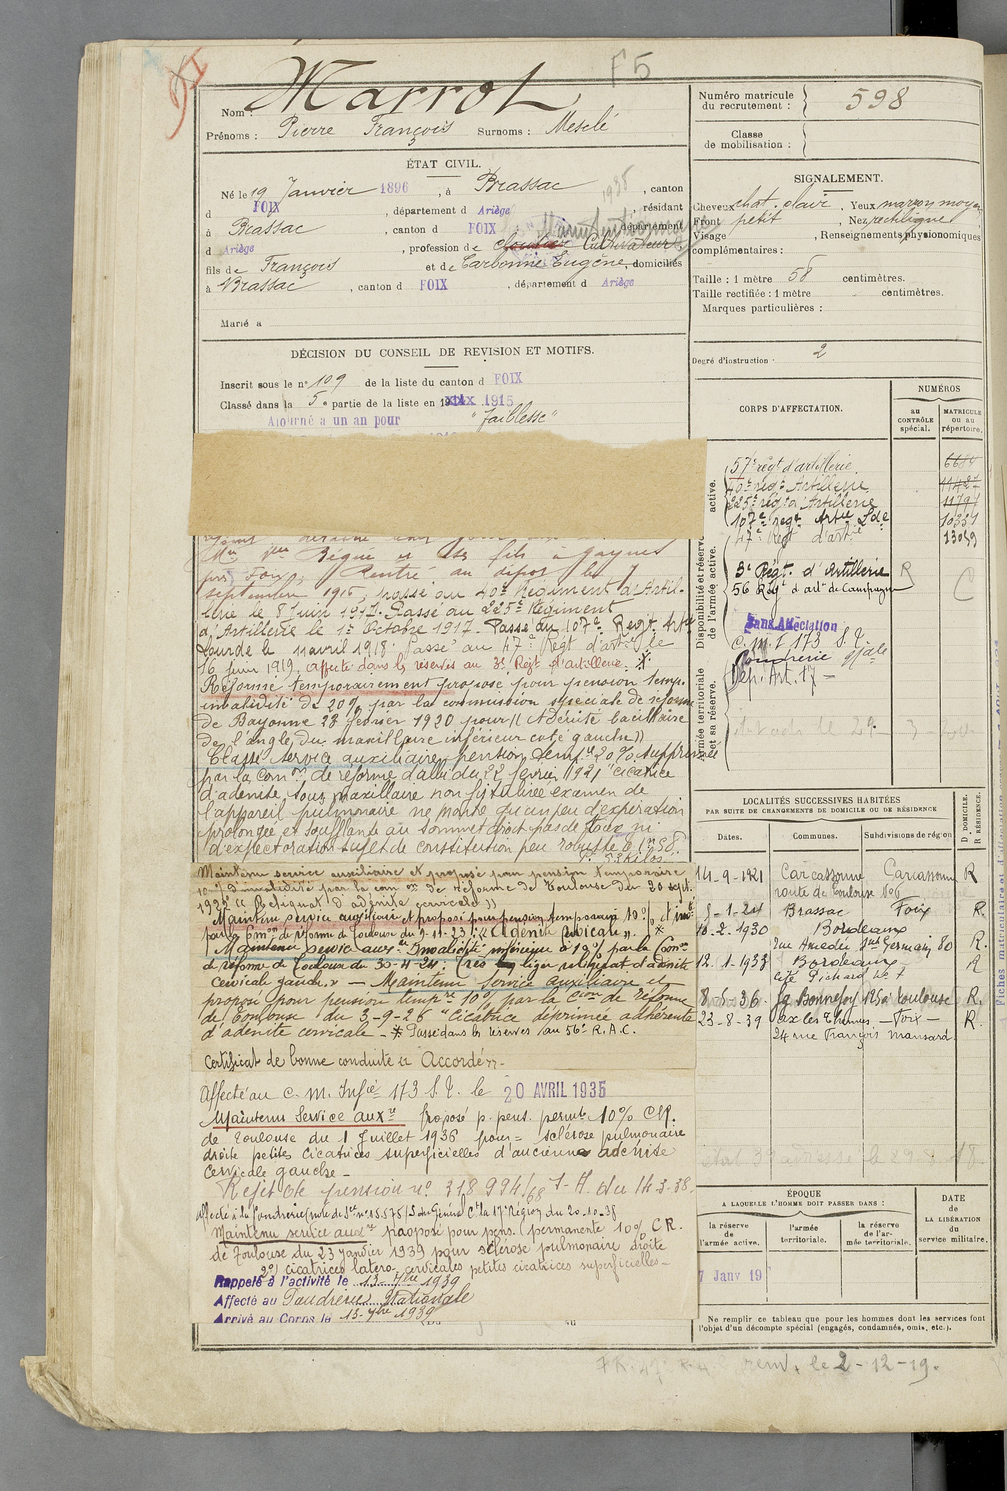 F5
Nom : Marrot
Prénoms : Pierre François Surnoms : Mesclé
ÉTAT CIVIL.
Né le 19 Janvier 1896, à Brassac, canton
d FOIX, département d Ariège résidant
à Brassac, canton d FOIX, département
d Ariège, profession de Cultivateur
fils de François et de Carbonne Eugénie, domiciliés
à Brassac, canton d FOIX, département d Ariège
Marié à
DÉCISION DU CONSEIL DE REVISION ET MOTIFS.
Inscrit sous le n° 109 de la liste du canton d FOIX
Classé dans la 5e partie de la liste en 1915
Ajourné a un an pour "faiblesse"
Bégué et ses fils à
par Foix. Rentré au dépôt le 7
septembre 1916, passé au 40e Régiment d'Artil-
lerie le 8 Juin 1917. Passé au 225e Régiment
d'Artillerie le 1er Octobre 1917. Passé au 107e Regt. Artie
Lourde le 11 avril 1918. Passé au 47e Régt d'artie le
16 Juin 1919, affecté dans les réserves au 3e Régt d'artillerie. *
Réformé temporairement proposé pour pension temp.
invalidité de 20% par la commission spéciale de réforme
de Bayonne 23 février 1920 pour (( Adénite bacillaire
de l'angle du maxillaire inférieur coté gauche ))
Classé service auxiliaire, pension temp.re 20% supprimée
par la Comon de réforme d'albi du 22 février 1921 "cicatrice
d'adénite sous maxillaire non fistulisée examen de
l'appareil pulmonaire ne montre qu'un peu d'expiration
prolongée et soufflante au sommet droit pas de toux ni
d'expectoration sujet de constitution peu robuste
Maintenu service auxiliaire et proposé pour pension temporaire
10% d'invalidité par la comon de réforme de Toulouse du 20 sept.
(( Reliquat d'adénite cervicale ))
Maintenu service auxiliaire et proposé pour pension temporaire 10%
par la Comon de réforme de Toulouse du 9-11-23 : (( Adénite cervicale )). *
Maintenu service auxre Invalidité inférieure à 10% par la Comon
de réforme de Toulouse du 30-4-24 : (très léger reliquat d'adénite
cervicale gauche.)) — Maintenu service auxiliaire et
proposé pour pension tempre 10% par la Cion de réforme
de Toulouse du 3-9-26 "Cicatrice déprimée adhérente
d'adénite cervicale - * Passé dans les réserves au 56e R.A.C.
Certificat de bonne conduite « Accordé »
Affecté au C. M. Infie 173 S.T. le 20 AVRIL 1935
Maintenu Service Auxre Proposé p. pens. permte 10% C.R.
de Toulouse du 1 Juillet 1936 pour = sclérose pulmonaire
droite petites cicatrices superficielles d'ancienne adénite
cervicale gauche -
Rejet de pension n° 318994/68 du 14-3-38.
Maintenu service auxre proposé pour pens. permanente 10% C.R.
de Toulouse du 23 janvier 1939 pour sclérose pulmonaire droite
2°) cicatrices latéro-cervicales petites cicatrices superficielles -
Rappelé à l'activité le 13-7bre 1939
Affecté au Poudrerie Nationale
Arrivé au Corps le 13-7bre 1939
Numéro matricule du recrutement : 598
Classe de mobilisation :
SIGNALEMENT.
Cheveux chat. clair, Yeux marron moyen
Front petit, Nez rectiligne
Visage, Renseignements physionomiques
complémentaires :
Taille : 1 mètre 58 centimètres.
Taille rectifiée : 1 mètre centimètres.
Marques particulières :
Degré d'instruction : 2
CORPS D'AFFECTATION.
NUMÉROS
au CONTRÔLE spécial.
MATRICULE ou au répertoire.
Disponibilité et réserve de l'armée active.
Armée territoriale et sa réserve.
57e régt d'artillerie.
40e régt Artillerie 11427
225e régt d'Artillerie 11791
107e regt Artie Lde 10351
47e Régt d'artie 13059
3e Régt. d'Artillerie R C
56 Régt d'artie de Campagne
Sans Affectation
C. M. I 173 S.T.
Poudrerie Nale
Dép. Art. 17 -
LOCALITÉS SUCCESSIVES HABITÉES
PAR SUITE DE CHANGEMENTS DE DOMICILE OU DE RÉSIDENCE
Dates. Communes. Subdivisions de région
D DOMICILE. R RÉSIDENCE.
14-9-1921 Carcassonne Carcassonne R
route de Toulouse n°6
8-1-24 Brassac Foix R.
10-2-1930 Bordeaux
rue Amédée St Germain 80 R.
12.1-1933 Bordeaux R
cité Pichard n° 7
8-5-36. Jq Bonnefoy 125a toulouse R.
23-8-39 ax les thermes - Foix - R.
24 rue François Mansard
ÉPOQUE
A LAQUELLE L'HOMME DOIT PASSER DANS :
la réserve de l'armée active.
l'armée territoriale.
la réserve de l'armée territoriale.
DATE de LA LIBÉRATION du service militaire.
7 Janv 19
Ne remplir ce tableau que pour les hommes dont les services font
l'objet d'un décompte spécial (engagés, condamnés, omis, etc.).
rem. le 2-12-19.